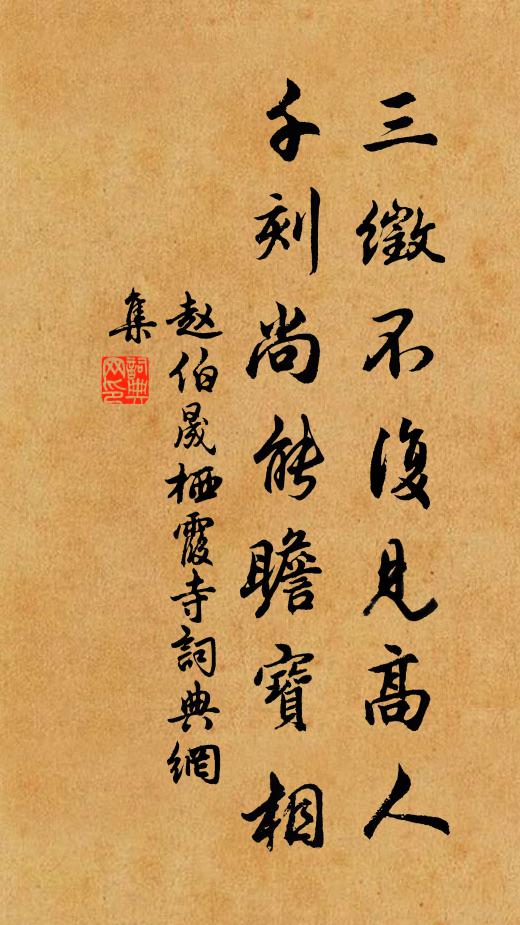 三徵不復見高人
千刻尚能瞻寶相
赵伯晟栖霞寺詞典網
集
詞典
网印